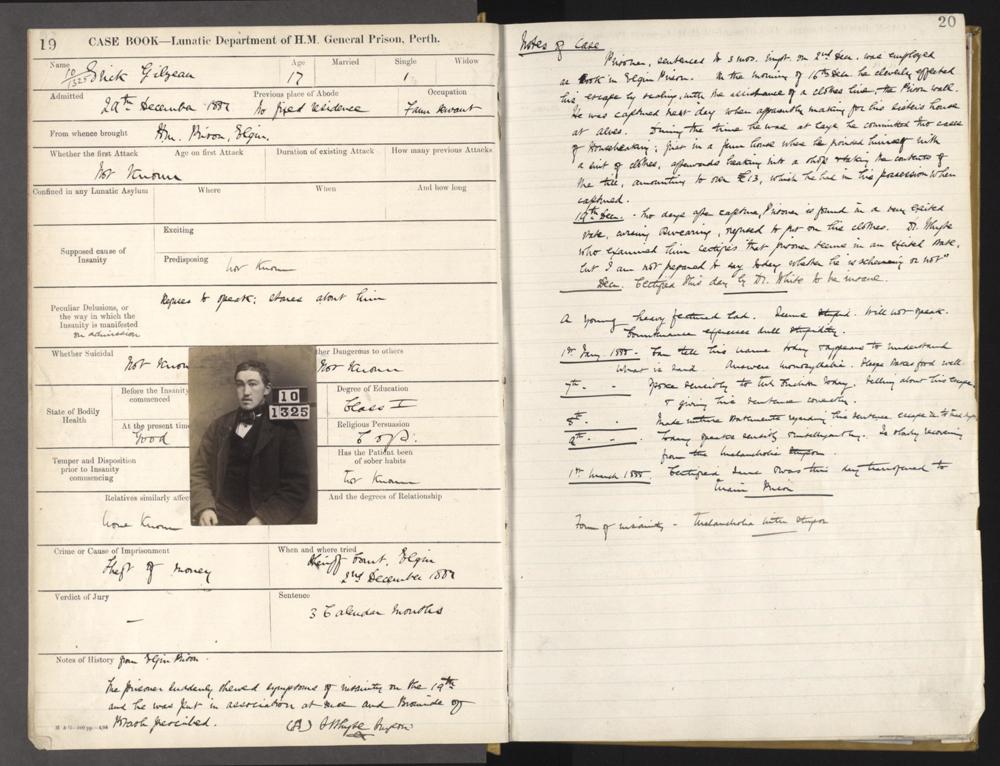 19
CASE BOOK—Lunatic Department of H.M. General Prison, Perth.
Name
Age
Married
Single
Widow
10/1325 Erick Gilzean
17
1
Admitted
Previous place of Abode
Occupation
29th December 1887
No fixed residence
Farm Servant
From whence brought
Hm. Prison, Elgin
Whether the first Attack
Age on first Attack
Duration of existing Attack
How many previous Attacks
Not Known
Confined in any Lunatic Asylum
Where
When
And how long
Supposed cause of Insanity
Exciting
Predisposing
Not Known
Peculiar Delusions, or
the way in which the
Insanity is manifested
on admission
Refuses to speak; stares about him
Whether Suicidal
ther Dangerous to others
Not Know
Not Known
State of Bodily Health
Before the Insanity commenced
Degree of Education
Class I
At the present time
Good
Religious Persuasion
10
1325
Temper and Disposition
prior to Insanity
commencing
Has the Patient been
of sober habits
Not Known
Relatives similarly affec
And the degrees of Relationship
None Known
Crime or Cause of Imprisonment
When and where tried
Theft of Money
Sheriff Court, Elgin
2nd December 1887
Verdict of Jury
Sentence
—
3 Calendar Months
Notes of History from Elgin Prison.
The prisoner suddenly shewed symptoms of insanity on the 19th
and he was put in association at once and Bromide of
Potash prescribed. (A) Whyte Surgeon
20
Notes of Case
Prisoner, sentenced to 3 mos. Impt. on 2nd Dec. was employed
as Cook in Elgin Prison. On the morning of 16th Dec. he cleverly effected
his escape by scaling, with the assistance of a clothes line, the Prison wall.
He was captured next day when apparently making for his sister's house
at Alves. During the time he was at large he committed two cases
of Housebreaking; first in a farm house where he provided himself with
a suit of clothes, afterwards breaking into a shop & taking the contents of
the till, amounting to over £13, which he had in his possession when
captured.
19th Dec. - Two days after capture, Prisoner is found in a very excited
state, cursing & swearing, refused to put on his clothes. Dr. Whyte
who examined him certifies that prisoner seems in an excited state,
but I am not prepared to say today whether he is scheming or not"
Dec. Certified this day by Dr. White to be insane.
A young heavy featured lad. Seems stupid. Will not speak.
Countenance expresses dull stupidity.
1st Jany. 1888 - Can tell his name today & appears to understand
what is said. Answers monosyllabic. Sleeps & takes food well.
7th - - Spoke sensibly to the today. Telling about his escape
& giving his sentence correctly.
8th - - Made statements regarding his sentence, escape &c to
9th - - Today speaks sensibly & intelligently. Is slowly recovering
from the melancholic stupor.
1st March 1888. Certified sane & was this day transferred to
Main Prison
Form of insanity - Melancholia with stupor